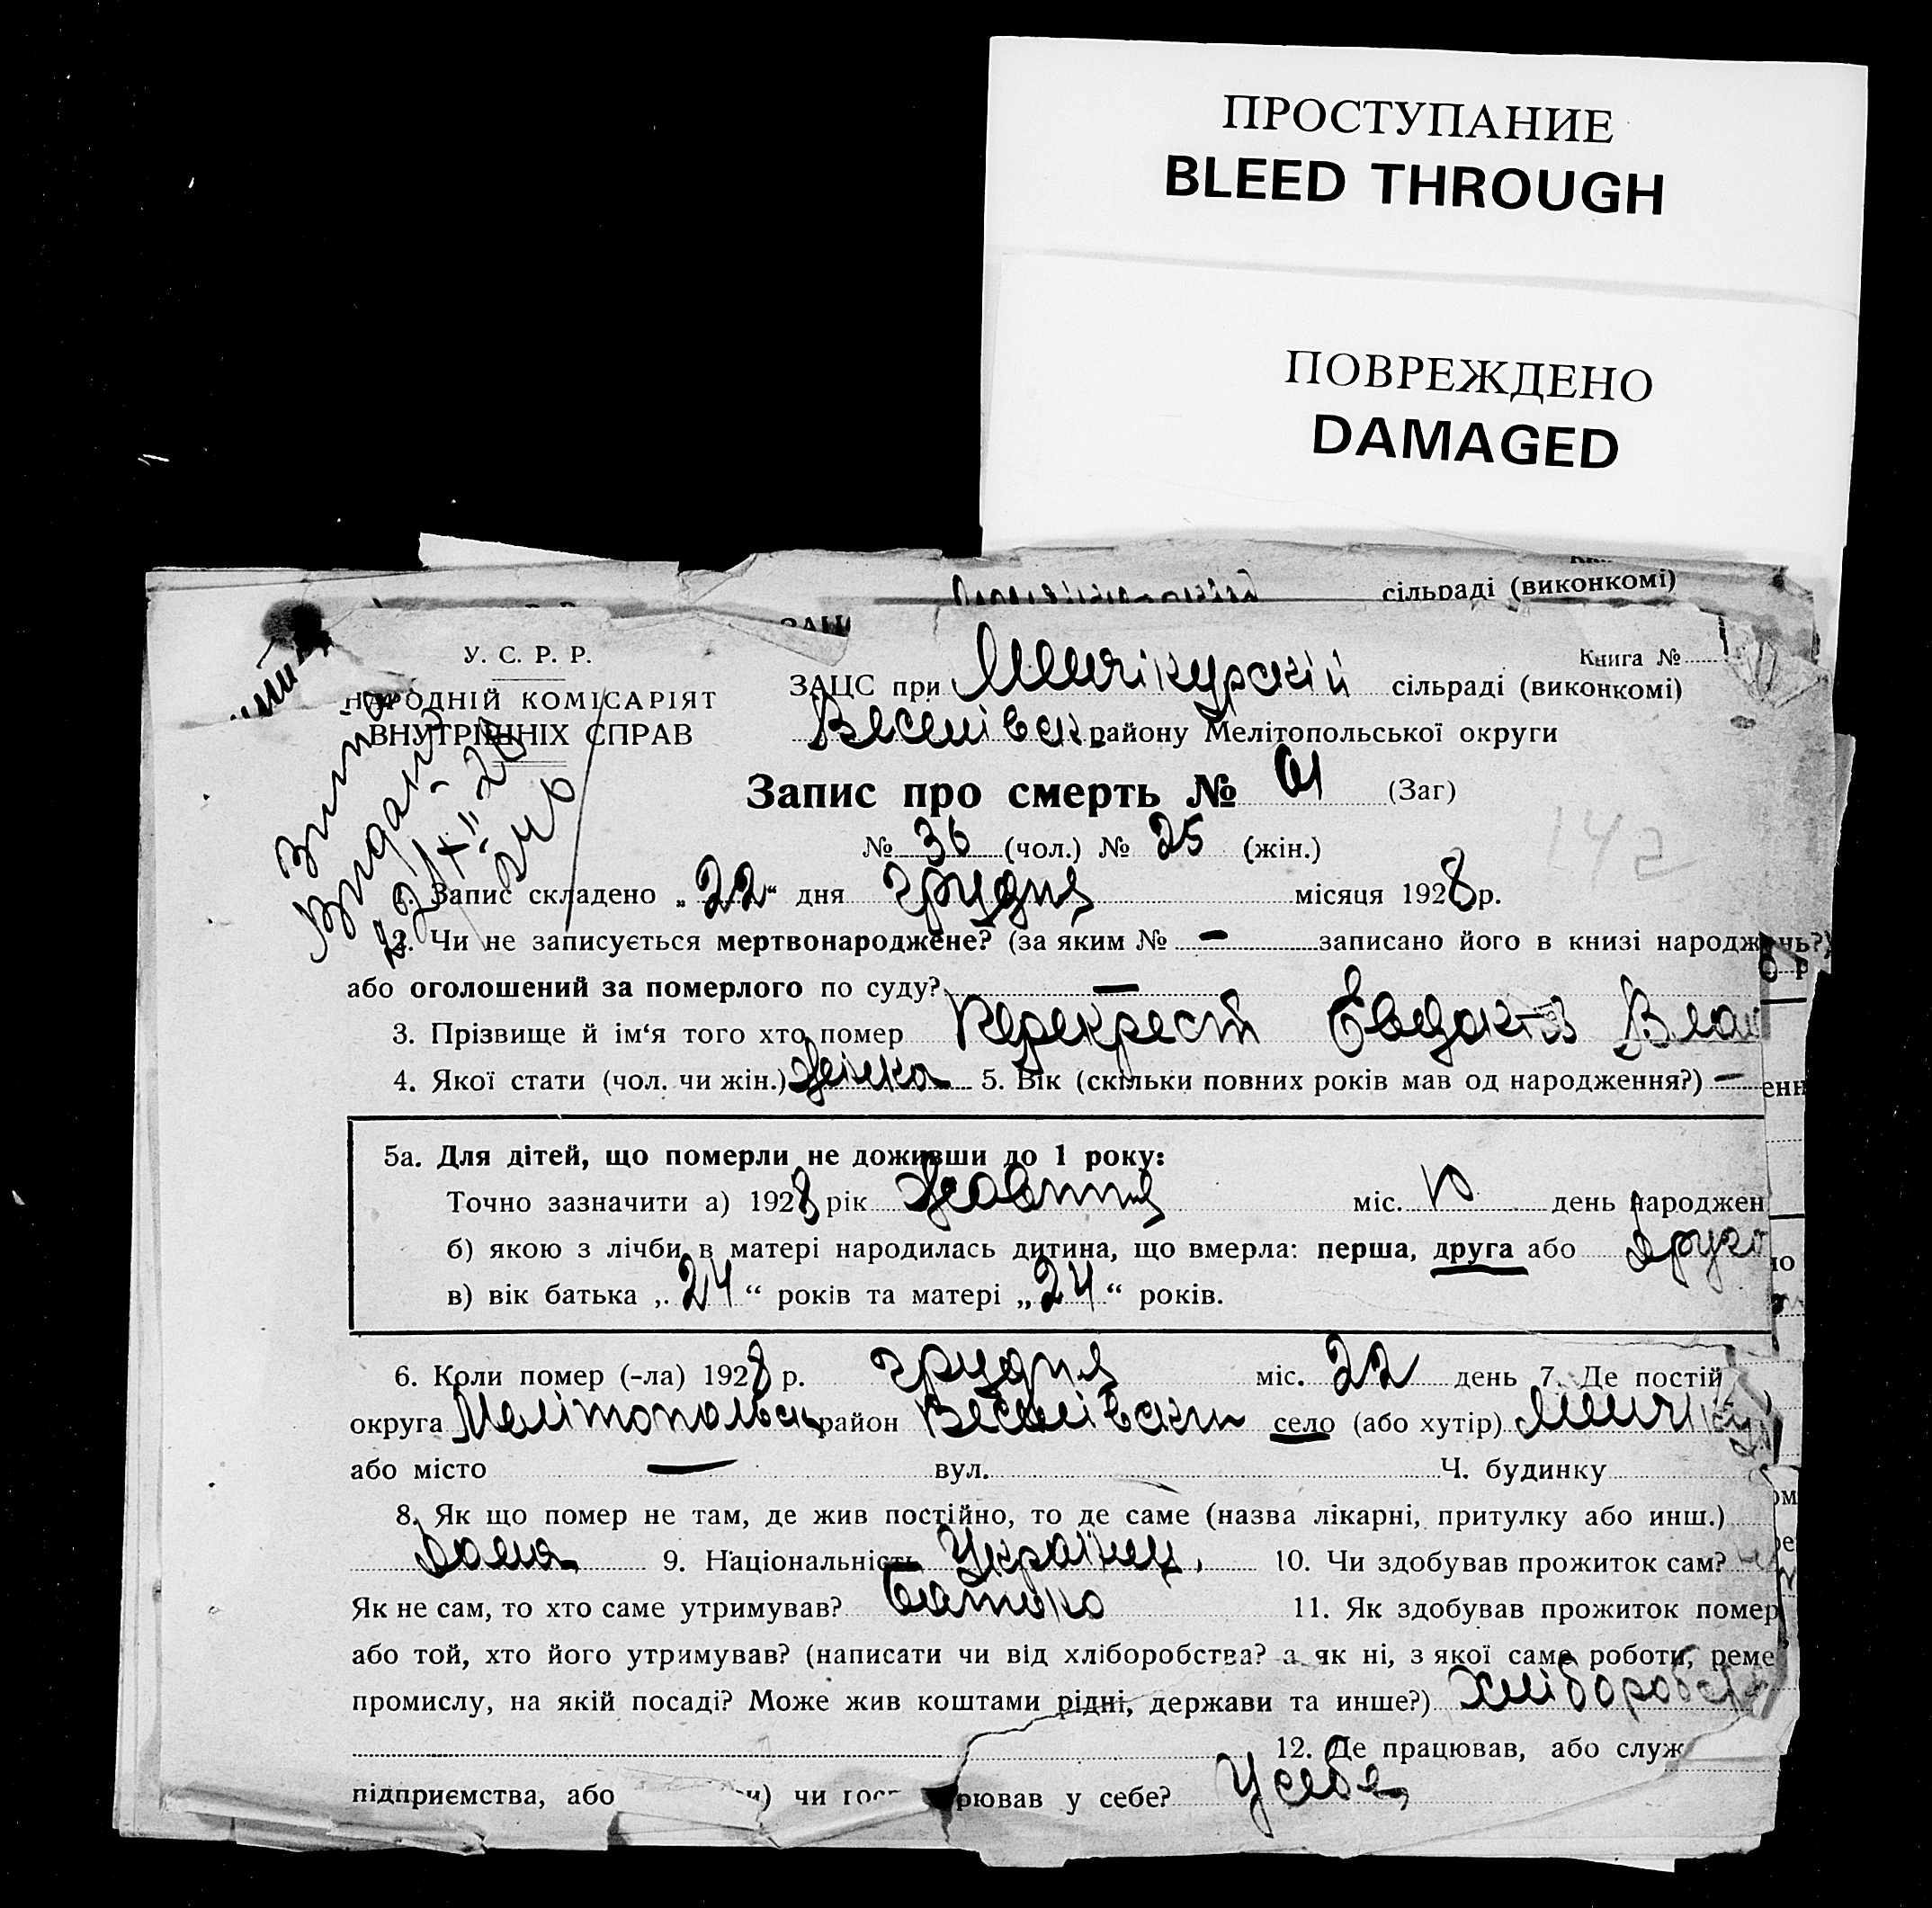 ПРОСТУПАНИЕ
BLEED THROUGH
ПОВРЕЖДЕНО
DAMAGED
сільраді (виконкомі)
ЗАЦС
У. С. Р. Р.
Книга №
НАРОДНІЙ КОМІСАРІЯТ
ВНУТРІШНІХ СПРАВ
ЗАЦС при Менчікурскій сільраді (виконкомі)
Веселівск. району Мелітопольської округи
Запис про смерть № 61 (Заг)
№ 36 (чол.) № 25 (жін.)
142
1. Запис складено „22“ дня грудня місяця 1928 р.
2. Чи не записується мертвонароджене? (за яким № — записано його в книзі народжень?)
або оголошений за померлого по суду? —
3. Прізвище й ім‘я того хто помер Перекрест Евдокія Влас
4. Якої стати (чол. чи жін.) жінка 5. Вік (скільки повних років мав од народження?) —
5а. Для дітей, що померли не доживши до 1 року:
Точно зазначити а) 1928 рік Жовтня міс. день народжен
б) якою з лічби в матері народилась дитина, що вмерла: перша, друга або друга
в) вік батька „24“ років та матері „24“ років.
6. Коли помер (-ла) 1928 р. грудня міс. 22 день 7. Де постій
округа Мелітопольск район Веселівськи село (або хутір) Менчікур
або місто — вул. Ч. будинку
8. Як що помер не там, де жив постійно, то де саме (назва лікарні, притулку або инш.)
дома 9. Національність Українец. 10. Чи здобував прожиток сам?
Як не сам, то хто саме утримував? Батько 11. Як здобував прожиток помер
або той, хто його утримував? (написати чи від хліборобства? а як ні, з якої саме роботи, реме
промислу, на якій посаді? Може жив коштами рідні, держави та инше?) хліборобств
12. Де працював, або служ
підприємства, або чи рював у себе? У себе